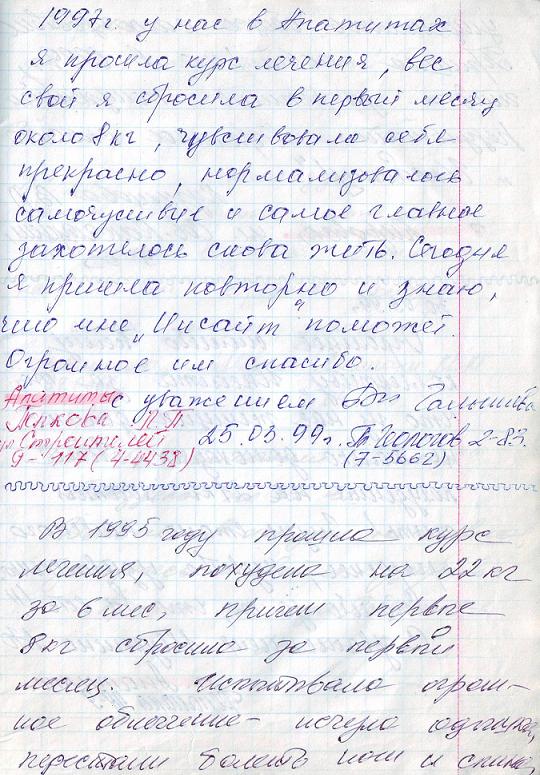 1997г. у нас в Апатитах
я прошла курс лечения, вес
свой я сбросила в первый месяц
около 8 кг, чувствовала себя
прекрасно, нормализовалось
самочуствие и самое главное
захотелось снова жить. Сегодня
я пришла повторно и знаю,
что мне "Инсайт" поможет
Огромное им спасибо.
Апатиты с уважением
П.П. 25.03.99г. 2-83
ул Строителей (7-5662)
9-117 (4-4438)
В 1995 году прошла курс
лечения, похудела на 22 кг
за 6 мес, причем первые
8 кг сбросила за первый
месяц. Испытывала огром-
ное облегчение - исчезла одышка,
перестали болеть ноги и спина,